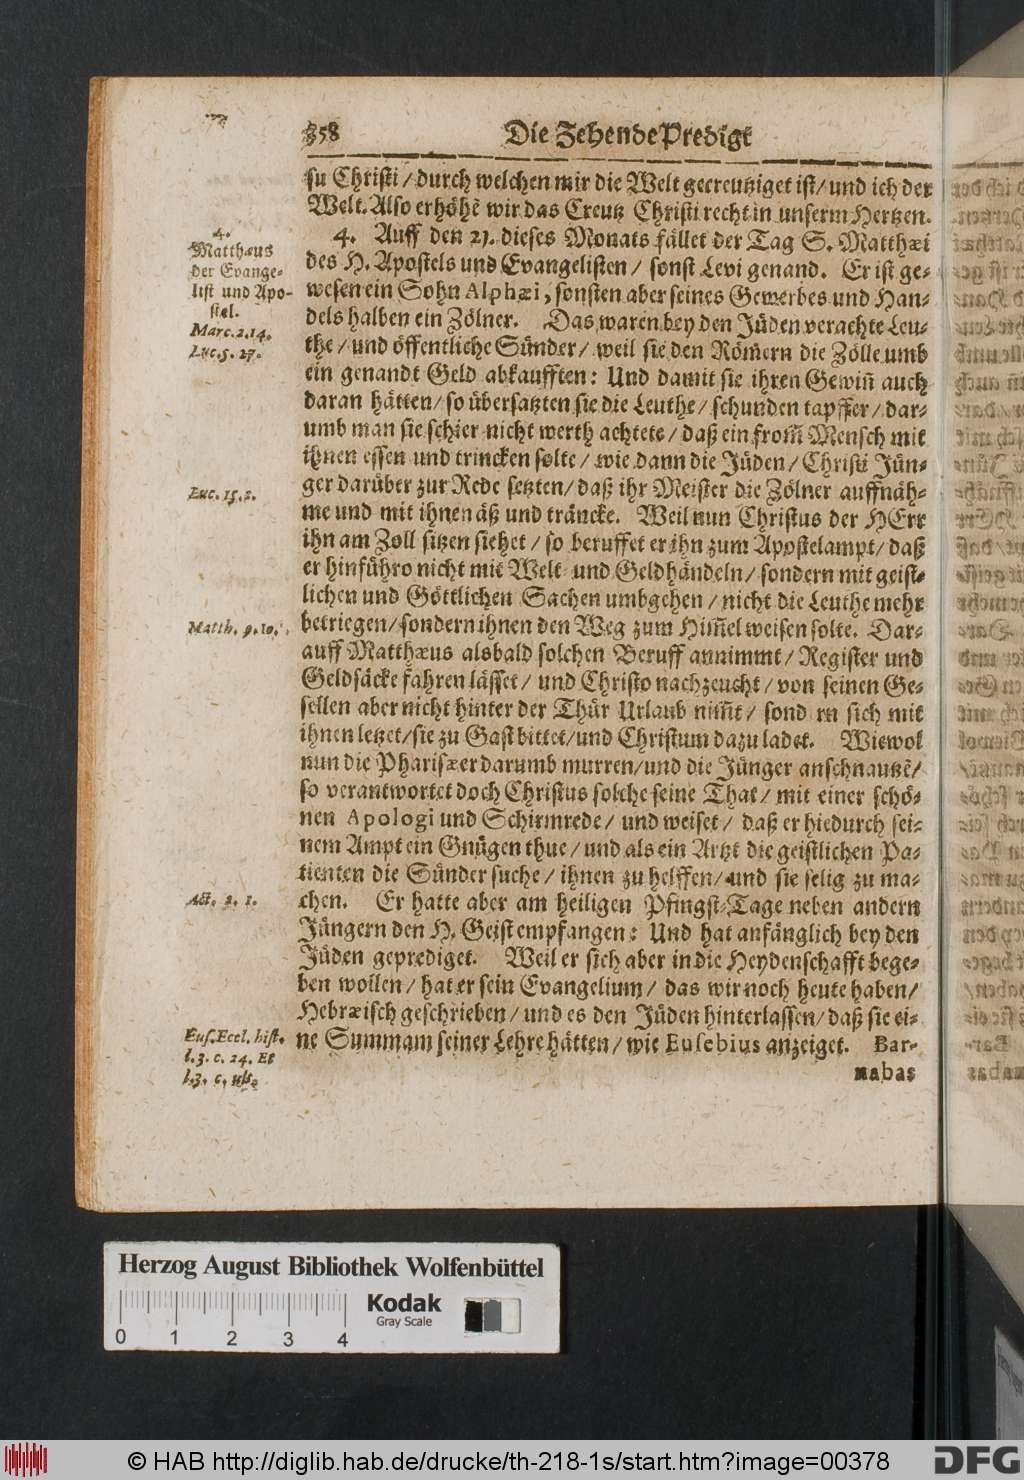 358 Die Zehende Predigt
su Christi / durch welchen mir die Welt gecreutziget ist / und ich der
Welt. Also erhöhẽ wir das Creutz Christi recht in unserm Hertzen.
4. Auff den 21. dieses Monats fället der Tag S. Matthæi
des H. Apostels und Evangelisten / sonst Levi genand. Er ist ge-
wesen ein Sohn Alphæi, sonsten aber seines Gewerbes und Han-
dels halben ein Zölner. Das waren bey den Jüden verachte Leu-
the / und öffentliche Sünder / weil sie den Römern die Zölle umb
ein genandt Geld abkaufften: Und damit sie ihren Gewiñ auch
daran hätten / so übersatzten sie die Leuthe / schunden tapffer / dar-
umb man sie schier nicht werth achtete / daß ein from̃ Mensch mit
ihnen essen und trincken solte / wie dann die Jüden / Christi Jün-
ger darüber zur Rede setzten / daß ihr Meister die Zölner auffnäh-
me und mit ihnen äß und träncke. Weil nun Christus der HErr
ihn am Zoll sitzen siehet / so beruffet er ihn zum Apostelampt / daß
er hinführo nicht mit Welt- und Geldhändeln / sondern mit geist-
lichen und Göttlichen Sachen umbgehen / nicht die Leuthe mehr
betriegen / sondern ihnen den Weg zum Him̃el weisen solte. Dar-
auff Matthæus alsbald solchen Beruff annimmt / Register und
Geldsäcke fahren lässet / und Christo nachzeucht / von seinen Ge-
sellen aber nicht hinter der Thür Urlaub nim̃t / sond rn sich mit
ihnen letzet / sie zu Gast bittet / und Christum dazu ladet. Wiewol
nun die Pharisæer darumb murren / und die Jünger anschnautzẽ /
so verantwortet doch Christus solche seine That / mit einer schö-
nen Apologi und Schirmrede / und weiset / daß er hiedurch sei-
nem Ampt ein Gnügen thue / und als ein Artzt die geistlichen Pa-
tienten die Sünder suche / ihnen zu helffen / und sie selig zu ma-
chen. Er hatte aber am heiligen Pfingst-Tage neben andern
Jüngern den H. Geist empfangen: Und hat anfänglich bey den
Jüden geprediget. Weil er sich aber in die Heydenschafft bege-
ben wollen / hat er sein Evangelium / das wir noch heute haben /
Hebræisch geschrieben / und es den Jüden hinterlassen / daß sie ei-
ne Summam seiner Lehre hätten / wie Eusebius anzeiget. Bar-
nabas
4.
Matthæus
der Evange-
list und Apo-
stel.
Marc. 2. 14.
Luc. 5. 27.
Luc. 15. 2.
Matth. 9. 10.
Act. 2. 1.
Eus. Eccl. hist.
l. 3. c. 24. Et
l. 3. c. ult.
Herzog August Bibliothek Wolfenbüttel
0 1 2 3 4
Kodak
Gray Scale
© HAB http://diglib.hab.de/drucke/th-218-1s/start.htm?image=00378
DFG